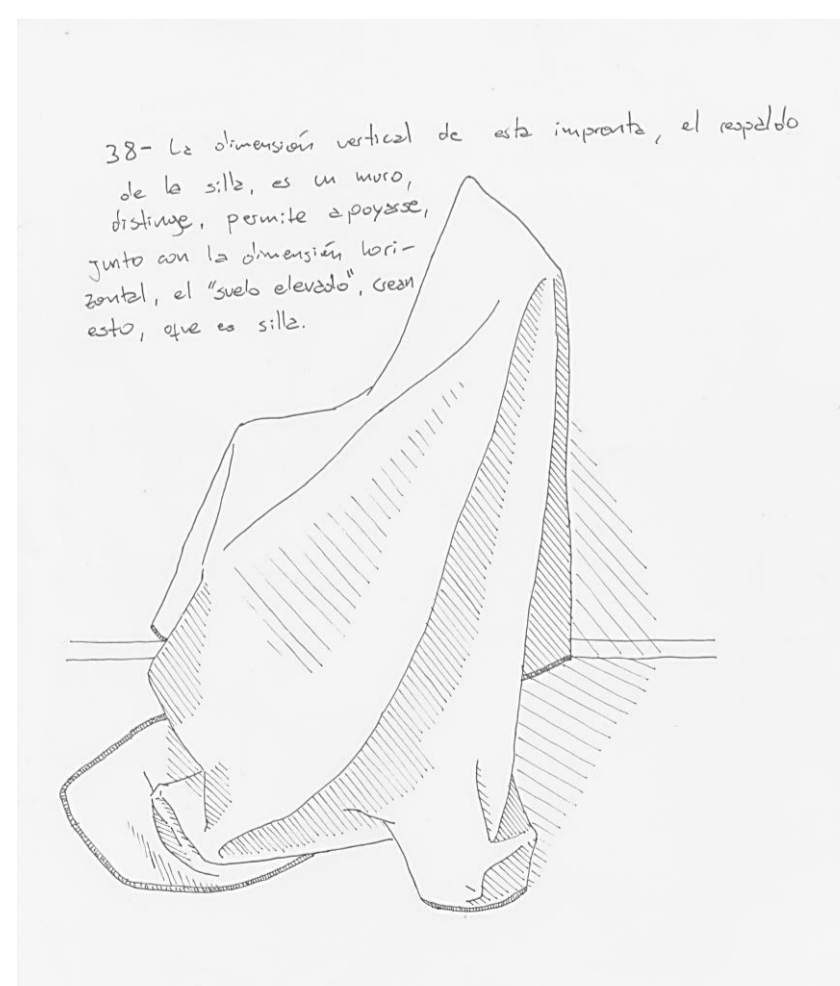 38- La dimensión vertical de esta impronta, el respaldo
de la silla, es un muro,
distingue, permite apoyarse,
junto con la dimensión hori-
zontal, el "suelo elevado", crean
esto, que es silla.